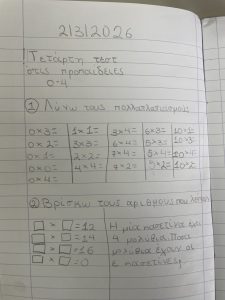 2/3/2026
Τετάρτη τεστ
στις προπαίδειες
0-4
① Λύνω τους πολλαπλασιασμούς
0×3= 1×1= 3×4= 6×3= 10×1=
0×2= 3×3= 6×4= 5×3= 10×3=
0×1= 2×2= 7×4= 5×4= 10×4=
0×0= 4×4= 7×2= 5×2= 10×2=
0×4=
② Βρίσκω τους αριθμούς που λείπουν
□ × □ =12 Η μία κασετίνα έχει
□ × □ =14 4 μολύβια. Πόσα
□ × □ =16 μολύβια έχουν οι
□ × □ =0 κασετίνες;